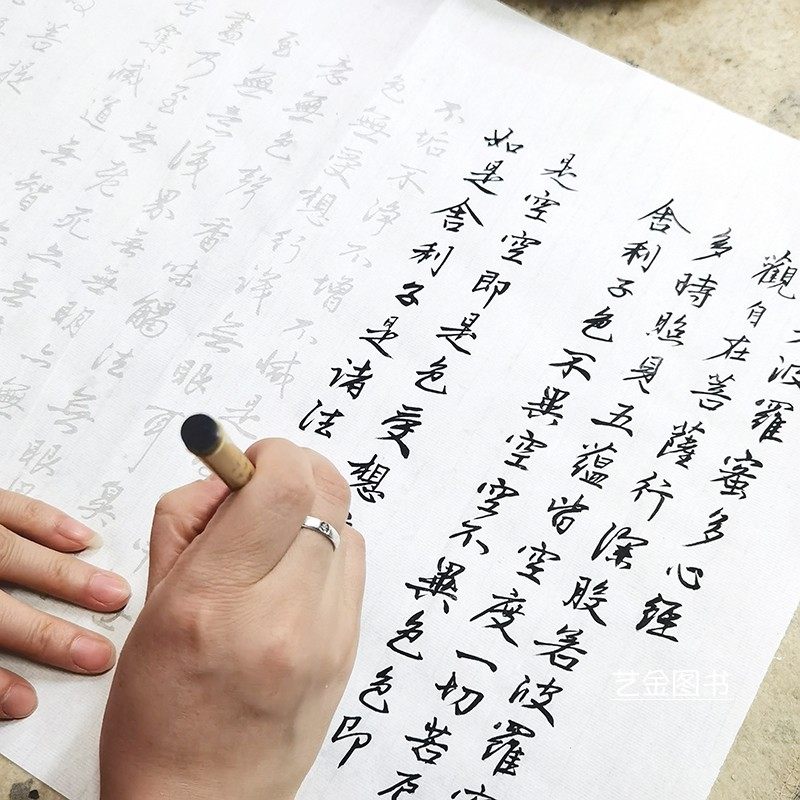 波羅蜜多心經
觀自在菩薩行深般若波羅
多時照見五蘊皆空度一切苦厄
舍利子色不異空空不異色色即
是空空即是色受想
如是舍利子是諸法
不垢不淨不增不減是
色無受想行識無眼耳
意無色聲香味觸法無眼
至無意識界無無明亦無
盡乃至無老死亦無
集滅道無智亦
菩提
艺金图书